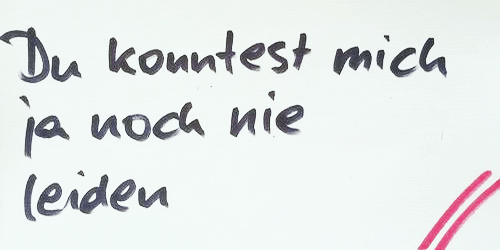 Du konntest mich
ja noch nie
leiden